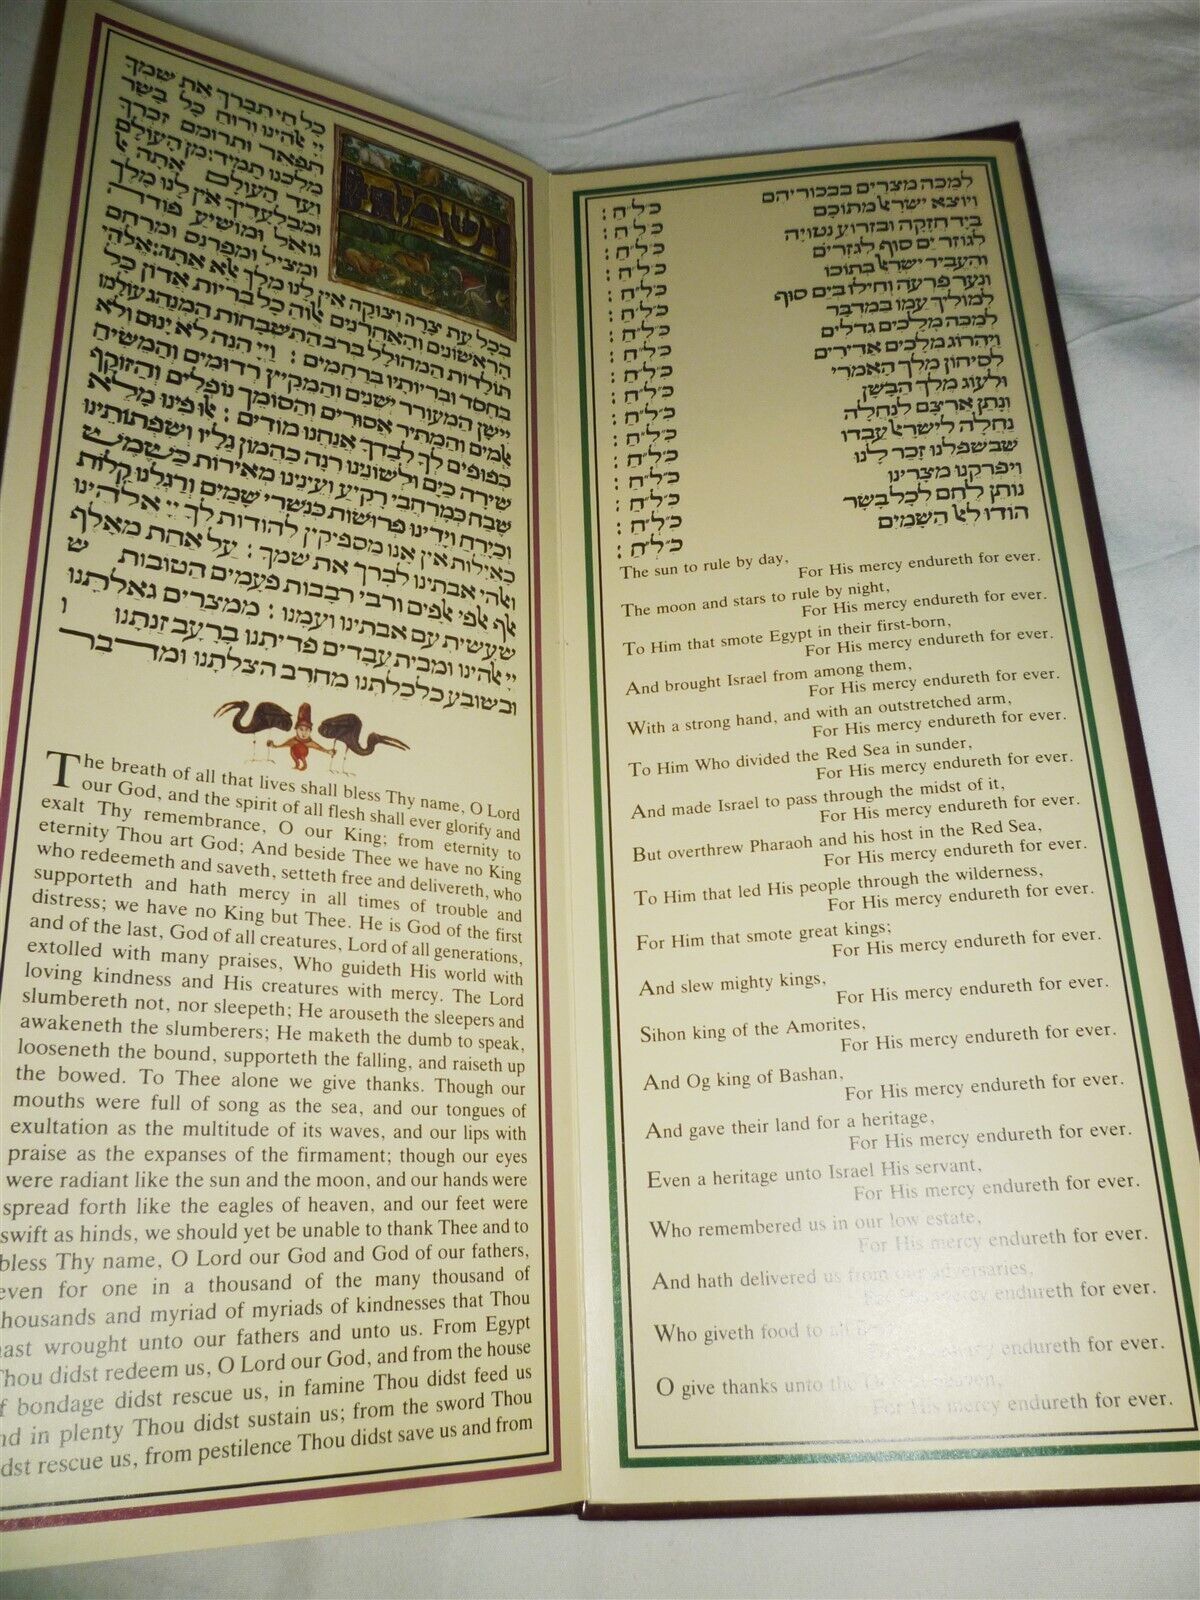 למכה מצרים בבכוריהם כ״ל״ח׃
ויוצא ישראל מתוכם כ״ל״ח׃
ביד חזקה ובזרוע נטויה כ״ל״ח׃
לגוזר ים סוף לגזרים כ״ל״ח׃
והעביר ישראל בתוכו כ״ל״ח׃
ונער פרעה וחילו בים סוף כ״ל״ח׃
למוליך עמו במדבר כ״ל״ח׃
למכה מלכים גדלים כ״ל״ח׃
ויהרוג מלכים אדירים כ״ל״ח׃
לסיחון מלך האמרי כ״ל״ח׃
ולעוג מלך הבשן כ״ל״ח׃
ונתן ארצם לנחלה כ״ל״ח׃
נחלה לישראל עבדו כ״ל״ח׃
שבשפלנו זכר לנו כ״ל״ח׃
ויפרקנו מצרינו כ״ל״ח׃
נותן לחם לכל בשר כ״ל״ח׃
הודו לאל השמים כ״ל״ח׃
The sun to rule by day,
For His mercy endureth for ever.
The moon and stars to rule by night,
For His mercy endureth for ever.
To Him that smote Egypt in their first-born,
For His mercy endureth for ever.
And brought Israel from among them,
For His mercy endureth for ever.
With a strong hand, and with an outstretched arm,
For His mercy endureth for ever.
To Him Who divided the Red Sea in sunder,
For His mercy endureth for ever.
And made Israel to pass through the midst of it,
For His mercy endureth for ever.
But overthrew Pharaoh and his host in the Red Sea,
For His mercy endureth for ever.
To Him that led His people through the wilderness,
For His mercy endureth for ever.
For Him that smote great kings;
For His mercy endureth for ever.
And slew mighty kings,
For His mercy endureth for ever.
Sihon king of the Amorites,
For His mercy endureth for ever.
And Og king of Bashan,
For His mercy endureth for ever.
And gave their land for a heritage,
For His mercy endureth for ever.
Even a heritage unto Israel His servant,
For His mercy endureth for ever.
Who remembered us in our low estate,
For His mercy endureth for ever.
And hath delivered us from our adversaries,
For His mercy endureth for ever.
Who giveth food to all
mercy endureth for ever.
O give thanks unto the heaven,
For His mercy endureth for ever.
נשמת
כל חי תברך את שמך
יי אלהינו ורוח כל בשר
תפאר ותרומם זכרך
מלכנו תמיד׃ מן העולם
ועד העולם אתה אל
ומבלעדיך אין לנו מלך
גואל ומושיע פודה
ומציל ומפרנס ומרחם
בכל עת צרה וצוקה אין לנו מלך אלא אתה׃ אלהי
הראשונים והאחרונים אלוה כל בריות אדון כל
תולדות המהולל ברב התשבחות המנהג עולמו
בחסד ובריותיו ברחמים׃ ויי הנה לא ינום ולא
יישן המעורר ישנים והמקיץ רדומים והמשיח
אלמים והמתיר אסורים והסומך נופלים והזוקף
כפופים לך לבדך אנחנו מודים׃ אלו פינו מלא
שירה כים ולשונינו רנה כהמון גליו ושפתותינו
שבח כמרחבי רקיע ועינינו מאירות כשמש
וכירח וידינו פרושות כנשרי שמים ורגלנו קלות
כאילות אין אנו מספיקין להודות לך יי אלהינו
ואלהי אבתינו לברך את שמך׃ על אחת מאלף
אלף אלפי אלפים ורבי רבבות פעמים הטובות ש
שעשית עם אבתינו ועמנו׃ ממצרים גאלתנו
יי אלהינו ומבית עבדים פדיתנו ברעב זנתנו ו
ובשובע כלכלתנו מחרב הצלתנו ומדבר
The breath of all that lives shall bless Thy name, O Lord
our God, and the spirit of all flesh shall ever glorify and
exalt Thy remembrance, O our King; from eternity to
eternity Thou art God; And beside Thee we have no King
who redeemeth and saveth, setteth free and delivereth, who
supporteth and hath mercy in all times of trouble and
distress; we have no King but Thee. He is God of the first
and of the last, God of all creatures, Lord of all generations,
extolled with many praises, Who guideth His world with
loving kindness and His creatures with mercy. The Lord
slumbereth not, nor sleepeth; He arouseth the sleepers and
awakeneth the slumberers; He maketh the dumb to speak,
looseneth the bound, supporteth the falling, and raiseth up
the bowed. To Thee alone we give thanks. Though our
mouths were full of song as the sea, and our tongues of
exultation as the multitude of its waves, and our lips with
praise as the expanses of the firmament; though our eyes
were radiant like the sun and the moon, and our hands were
spread forth like the eagles of heaven, and our feet were
swift as hinds, we should yet be unable to thank Thee and to
bless Thy name, O Lord our God and God of our fathers,
even for one in a thousand of the many thousand of
housands and myriad of myriads of kindnesses that Thou
ast wrought unto our fathers and unto us. From Egypt
Thou didst redeem us, O Lord our God, and from the house
f bondage didst rescue us, in famine Thou didst feed us
nd in plenty Thou didst sustain us; from the sword Thou
dst rescue us, from pestilence Thou didst save us and from